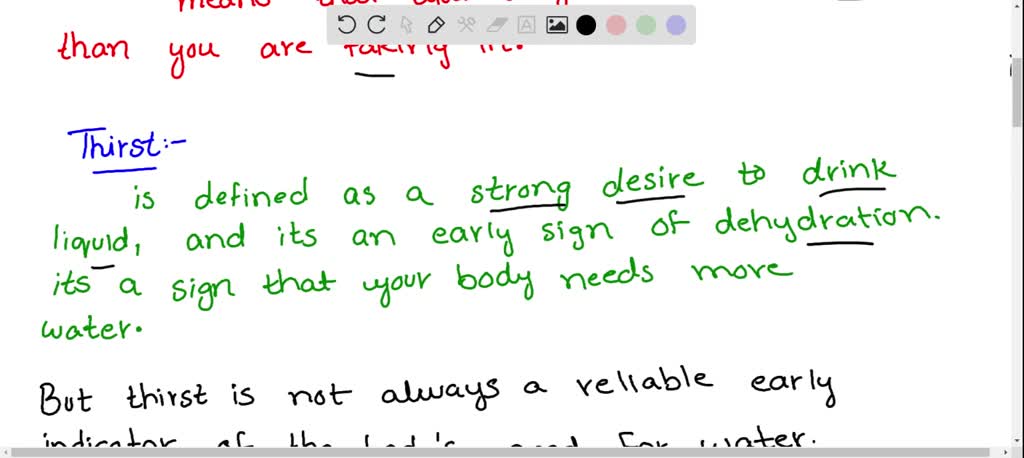 means that
than you are taking in.
Thirst:-
is defined as a strong desire to drink
liquid, and its an early sign of dehydration.
its a sign that your body needs more
water.
But thirst is not always a reliable early
indicator of the body's need for water.